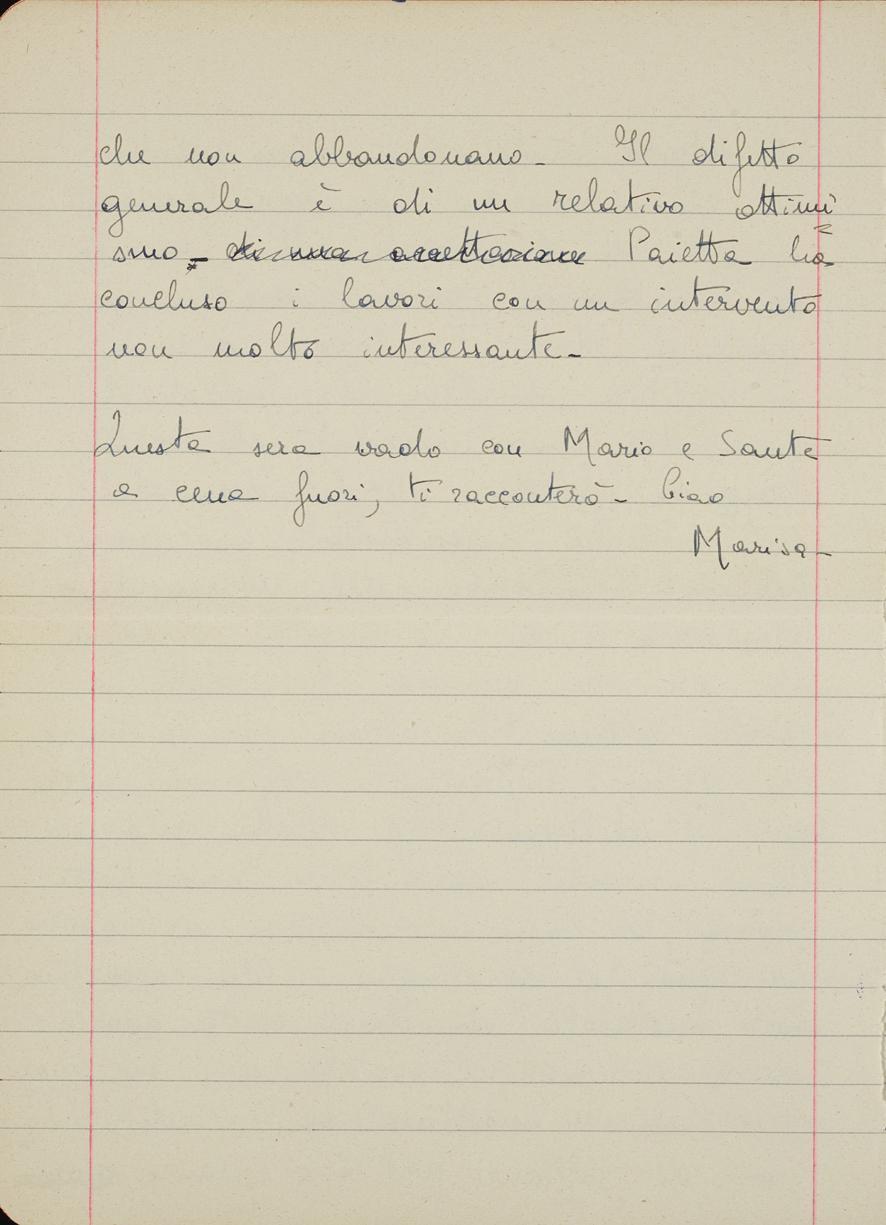 che non abbandonano - Il difetto
generale è di un relativo ottimi=
smo - di una accettazione Paietta ha
concluso i lavori con un intervento
non molto interessante -
Questa sera vado con Mario e Sante
a cena fuori, ti racconterò - Ciao
Marisa -